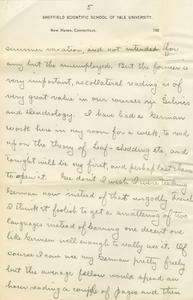 5
SHEFFIELD SCIENTIFIC SCHOOL OF YALE UNIVERSITY.
New Haven, Connecticut. 190
summer vacation, and not intended for
any but the unemployed. But the former is
very important, as collateral reading is of
very great value in our courses in Silvics
and Dendrology. I have had a German
book here in my room for a week, to read
up on the theory of leaf-shedding etc, and
tonight will be my first, and perhaps last chance
to open it. Gee don't I wish I were reading
German now instead of that ungodly French
I think it foolish to get a smattering of two
languages instead of learning one decent one
like German well enough to really use it. Of
course I can use my German pretty freely
but the average fellow would spend an
hour reading a couple of pages and then